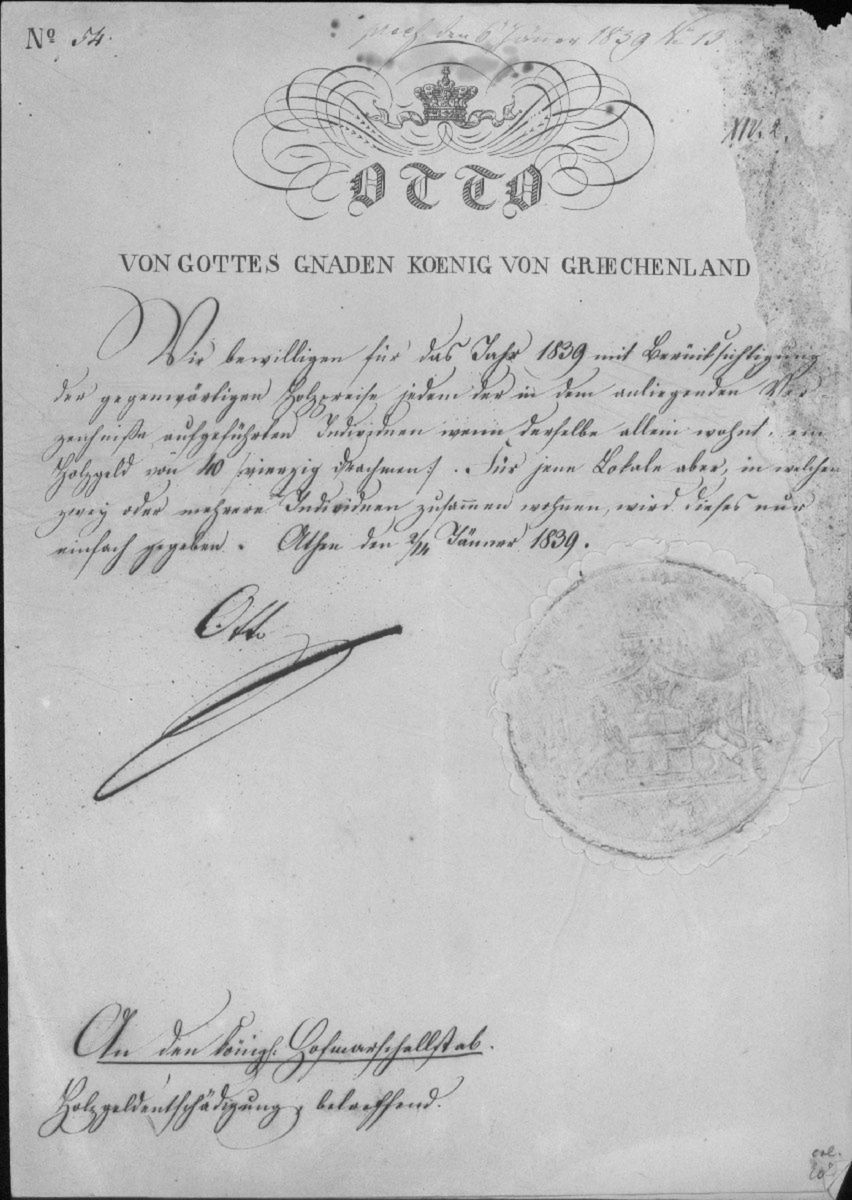 Nº 54.
den 6 Jäner 1839 No 13.
OTTO
VON GOTTES GNADEN KOENIG VON GRIECHENLAND
Wir bewilligen für das Jahr 1839 mit Berücksichtigung
der gegenwärtigen Holzpreise jedem der in dem anliegenden Ver
zeichniße aufgeführten Individuen wenn derselbe allein wohnt, ein
Holzgeld von 40 /:vierzig Drachmen:/. Für jene Lokale aber, in welchen
zwey oder mehrere Individuen zusammen wohnen, wird dieses nur
einfach gegeben. Athen den 2/14 Jänner 1839.
Otto
An den königl: Hofmarschallstab.
Holzgeldentschädigung betreffend.